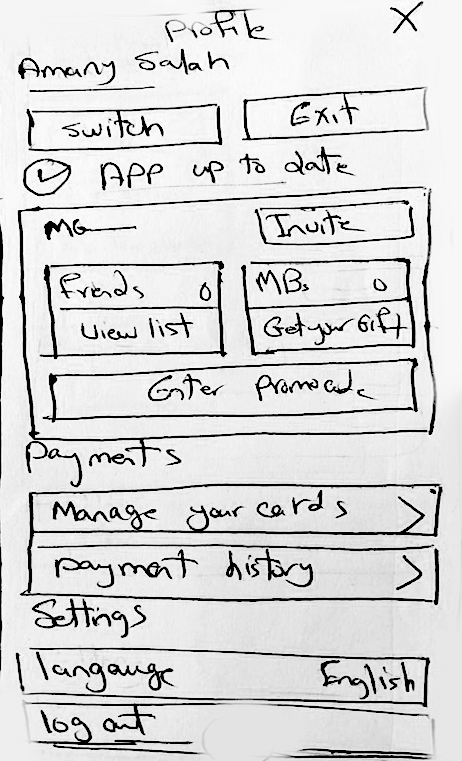 Profile X
Amany Salah
switch Exit
APP up to date
MG Invite
Friends 0 MBs 0
View list Get your Gift
Enter Promocode
Payments
Manage your cards >
payment history >
Settings
langauge English
log out